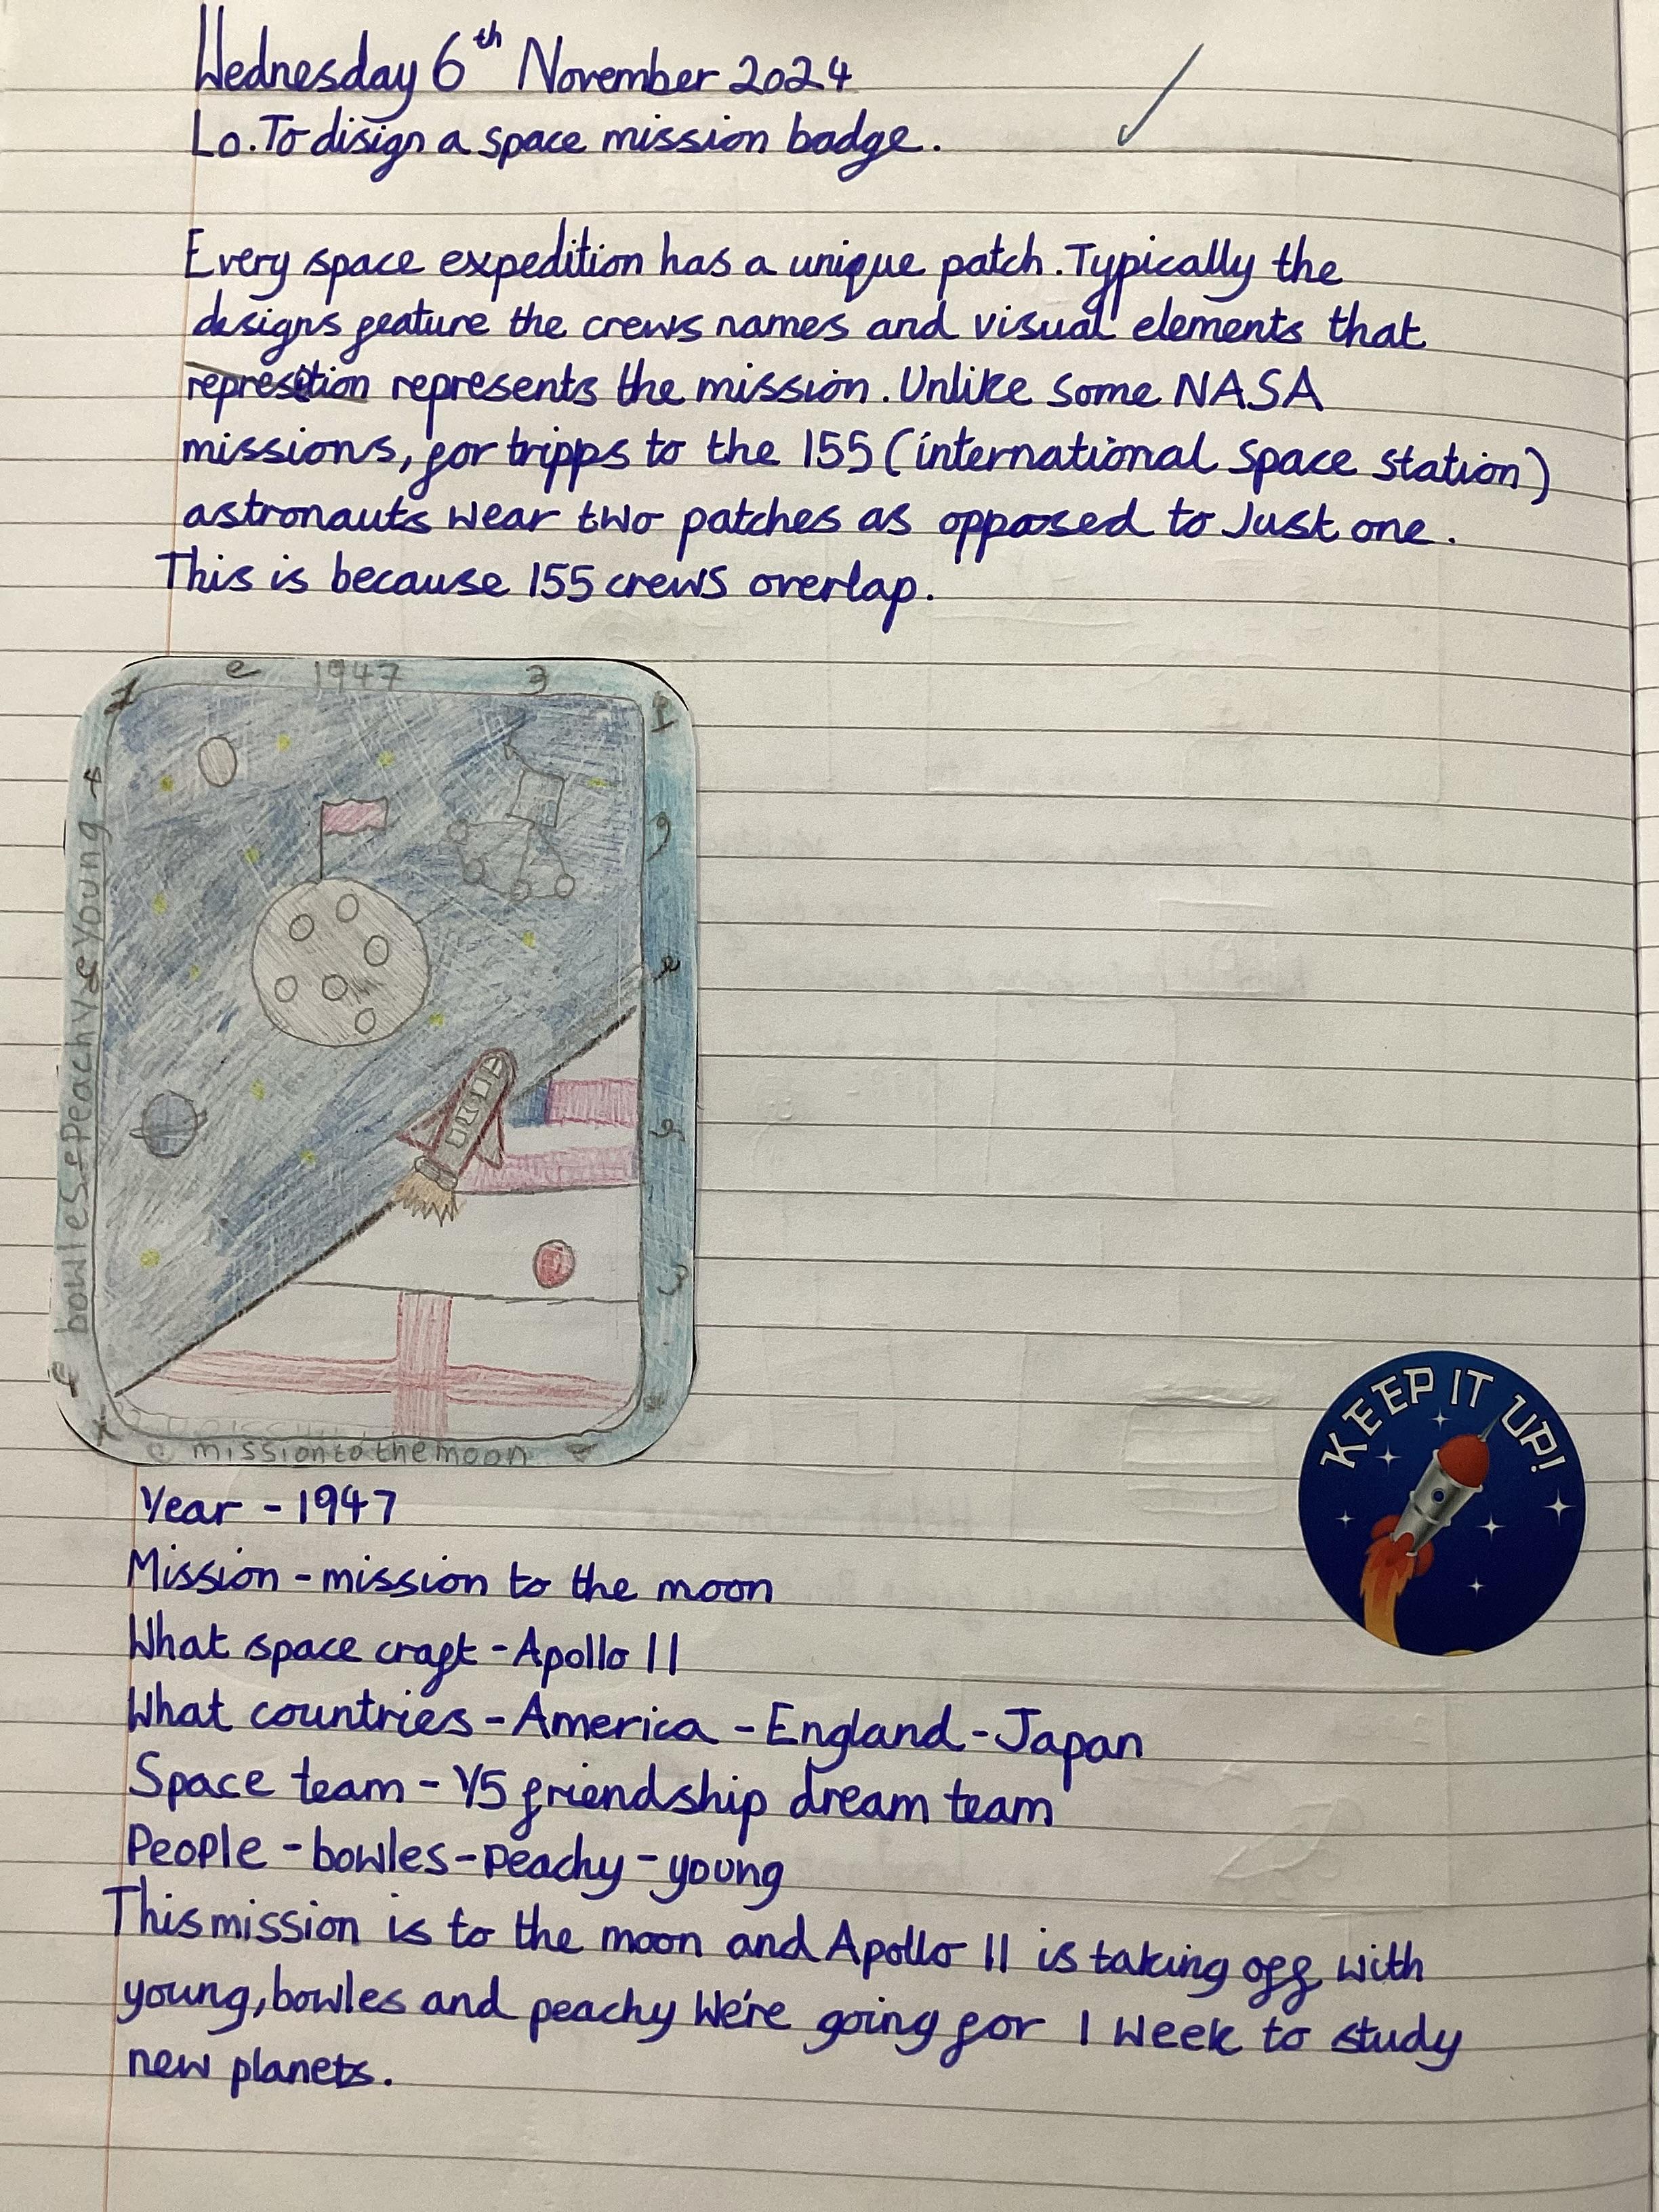 Wednesday 6th November 2024
Lo. To disign a space mission badge.
Every space expedition has a unique patch. Typically the
designs feature the crews names and visual elements that
represetion represents the mission. Unlike some NASA
missions, for tripps to the 155 (international space station)
astronauts wear two patches as opposed to Just one.
This is because 155 crews overlap.
1947
bowles peachy & young
mission to the moon
KEEP IT UP!
Year - 1947
Mission - mission to the moon
What space craft - Apollo 11
What countries - America - England - Japan
Space team - Y5 friendship dream team
People - bowles - peachy - young
This mission is to the moon and Apollo 11 is taking off with
young, bowles and peachy We're going for 1 week to study
new planets.